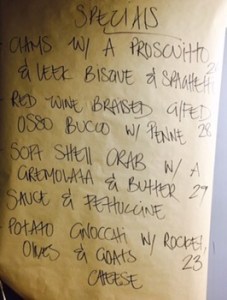 SPECIALS
CLAMS W/ A PROSCUITTO
& LEEK BISQUE & SPAGHETTI
RED WINE BRAISED G/FED
OSSO BUCCO W/ PENNE 28
SOFT SHELL CRAB W/ A
GREMOLATA & BUTTER 29
SAUCE & FETTUCCINE
POTATO GNOCCHI W/ ROCKET,
OLIVES & GOATS 23
CHEESE